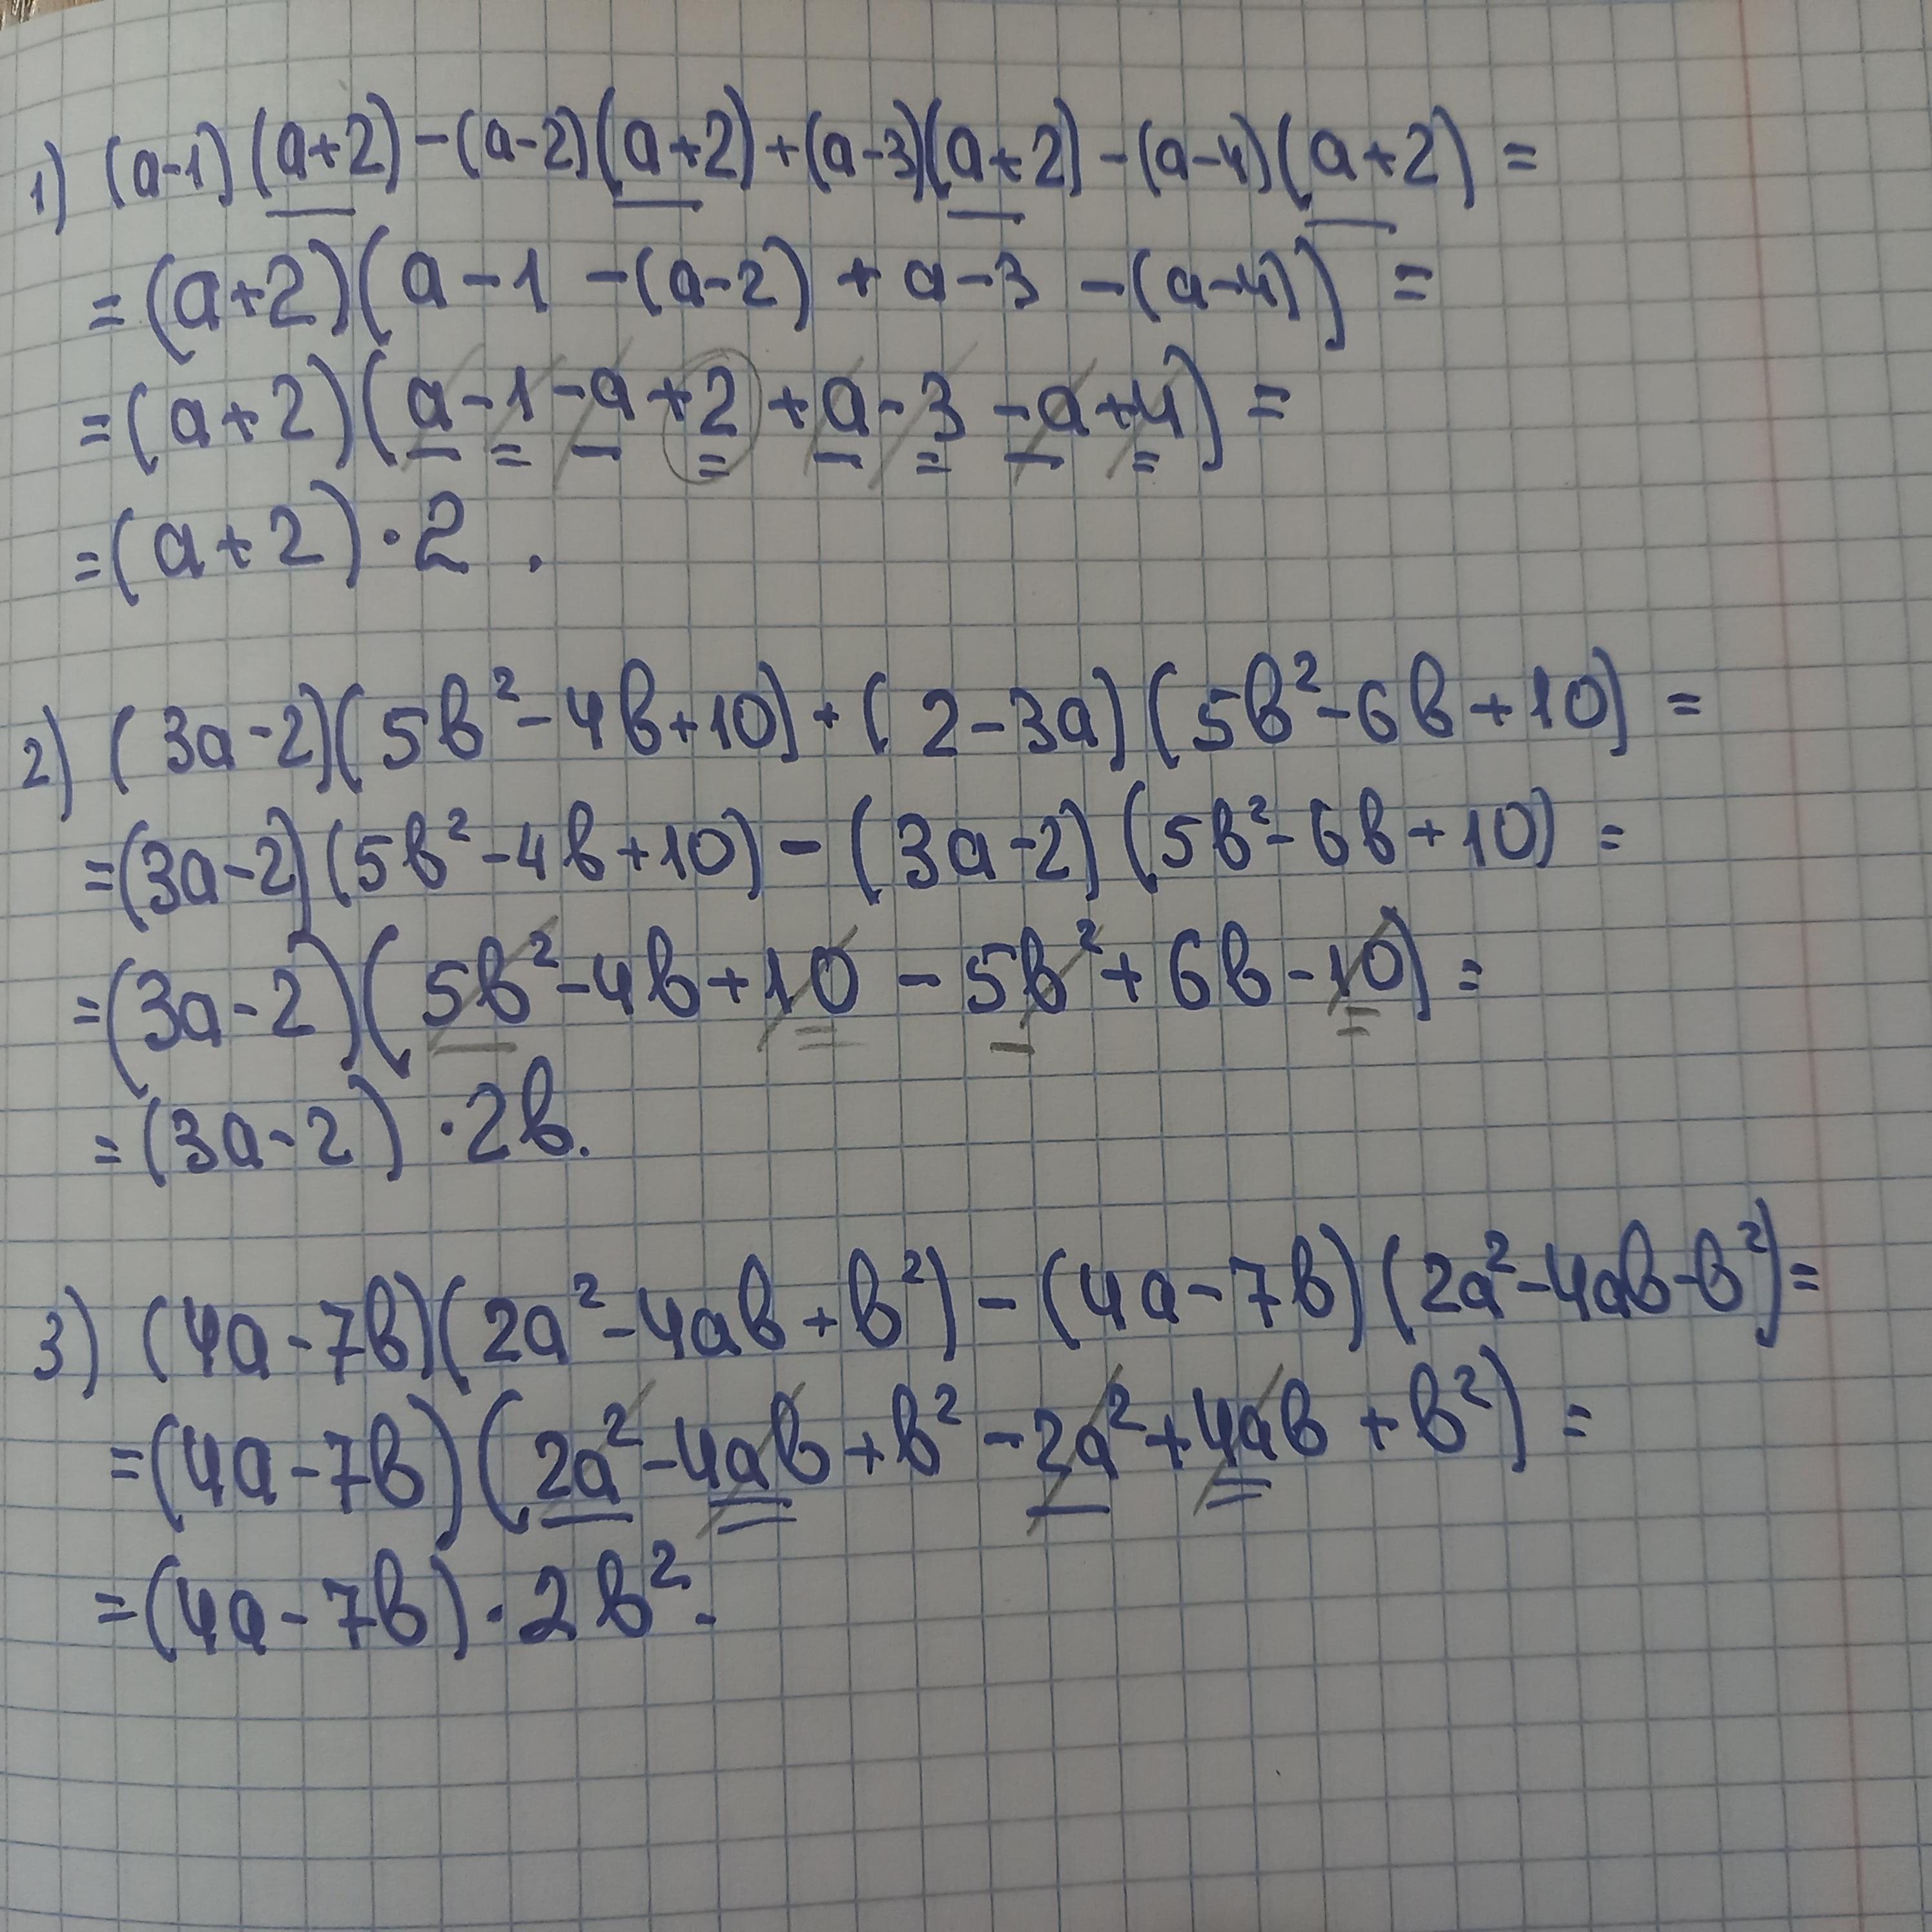 1) (a-1)(a+2)-(a-2)(a+2)+(a-3)(a+2)-(a-4)(a+2)=
=(a+2)(a-1-(a-2)+a-3-(a-4))=
=(a+2)(a-1-a+2+a-3-a+4)=
=(a+2)·2.
2) (3a-2)(5в²-4в+10)+(2-3a)(5в²-6в+10)=
=(3a-2)(5в²-4в+10)-(3a-2)(5в²-6в+10)=
=(3a-2)(5в²-4в+10-5в²+6в-10)=
=(3a-2)·2в.
3) (4a-7в)(2a²-4aв+в²)-(4a-7в)(2a²-4aв-в²)=
=(4a-7в)(2a²-4aв+в²-2a²+4aв+в²)=
=(4a-7в)·2в².